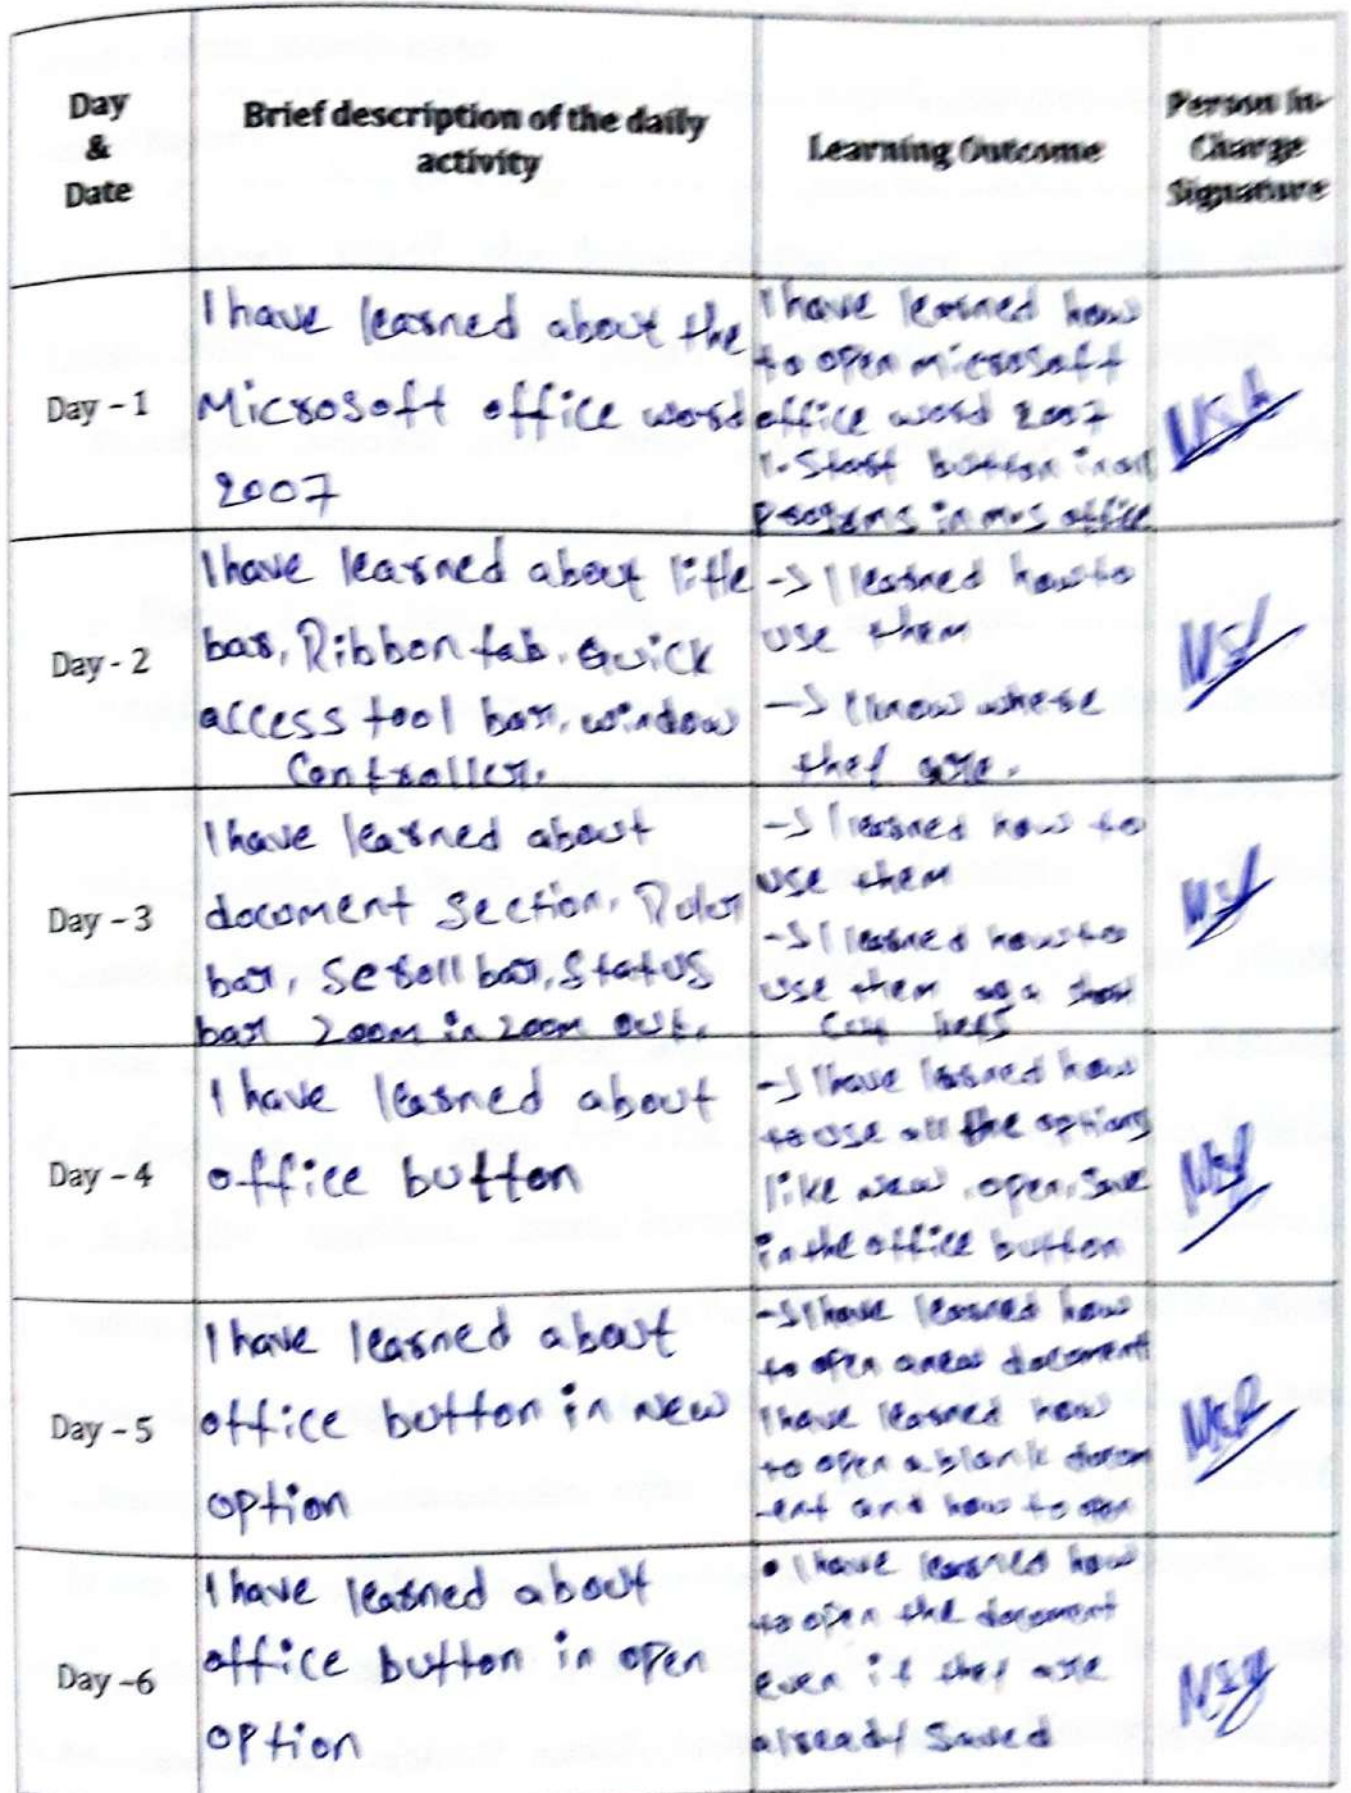 Day
&
Date
Brief description of the daily
activity
Learning Outcome
Person In-
Charge
Signature
Day - 1
I have learned about the
Microsoft office word
2007
I have learned how
to open microsoft
office word 2007
1. Start button in all
programs in m.s office
Day - 2
I have learned about title
bar, Ribbon tab, Quick
access tool bar, window
Controller.
-> I learned how to
use them
-> I know where
they are.
Day - 3
I have learned about
document section, Ruler
bar, scroll bar, status
bar zoom in zoom out.
-> I learned how to
use them
-> I learned how to
use them as a short
cut keys
Day - 4
I have learned about
office button
-> I have learned how
to use all the options
like new, open, save
in the office button
Day - 5
I have learned about
office button in new
option
-> I have learned how
to open a new document
I have learned how
to open a blank docum
-ent and how to open
Day -6
I have learned about
office button in open
option
• I have learned how
to open the document
even if they are
already saved